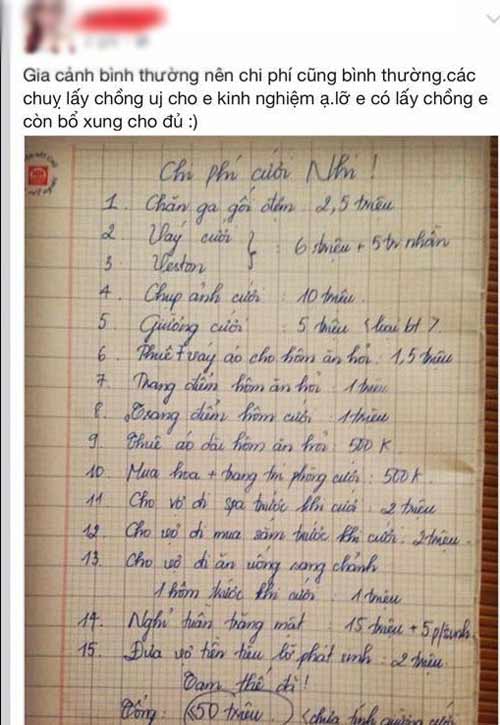 Gia cảnh bình thường nên chi phí cũng bình thường.các
chuỵ lấy chồng uj cho e kinh nghiệm ạ.lỡ e có lấy chồng e
còn bổ xung cho đủ :)
Chi phí cưới Nhi !
1. Chăn ga gối đệm 2,5 triệu
2. Váy cưới } : 6 triệu + 5tr nhẫn
3 Veston
4. Chụp ảnh cưới : 10 triệu.
5 Giường cưới : 5 triệu < loại bt >.
6. Thuê + váy áo cho hôm ăn hỏi : 1,5 triệu
7. Trang điểm hôm ăn hỏi : 1 triệu
8. Trang điểm hôm cưới : 1 triệu
9. Thuê áo dài hôm ăn hỏi : 500 K
10. Mua hoa + trang trí phòng cưới : 500 K.
11 Cho vợ đi spa trước khi cưới : 2 triệu
12 Cho vợ đi mua sắm trước khi cưới : 2 triệu.
13. Cho vợ đi ăn uống sang chảnh
1 hôm trước khi cưới : 1 triệu
14. Nghỉ tuần trăng mật : 15 triệu + 5 p/sinh
15. Đưa vợ tiền tiêu bờ phát sinh : 2 triệu.
Tạm thế đi !
Tổng : <50 triệu. < chưa tính giường cưới